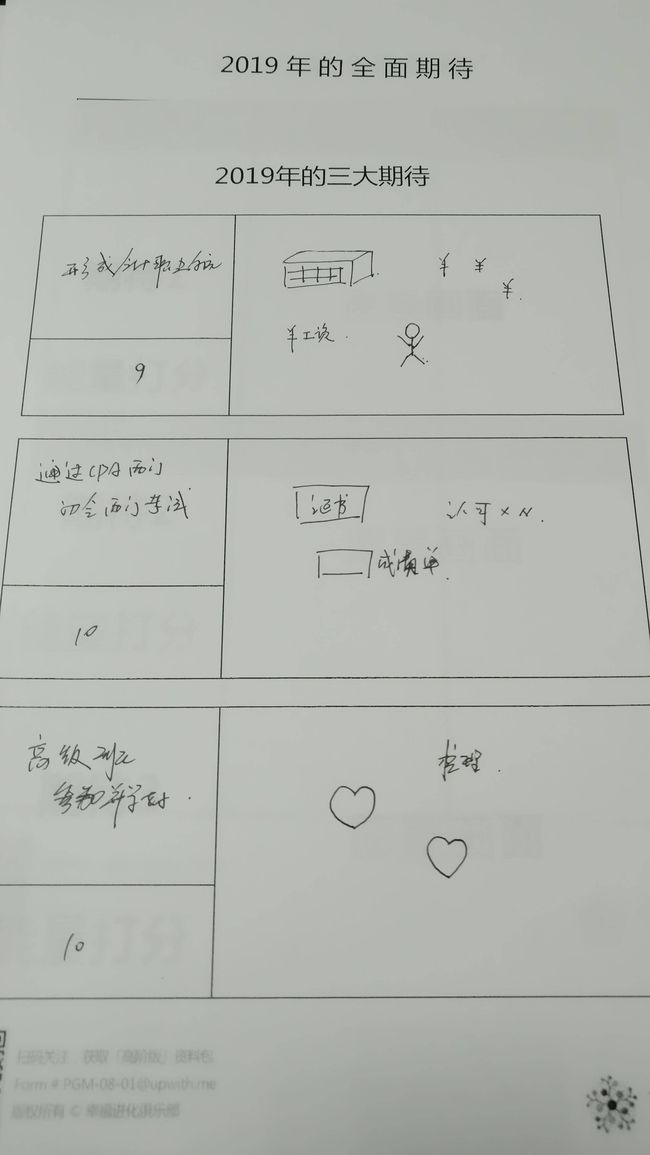 2019年的全面期待
2019年的三大期待
形成会计职业自信
¥ ¥
¥
9
¥工资.
通过CPA两门
初会两门考试
证书
认可×N.
成绩单.
10
高级班
参加并学好.
梳理.
10
扫码关注 获取「高阶版」资料包
Form # PGM-08-01@upwith.me
版权所有 © 幸福进化俱乐部